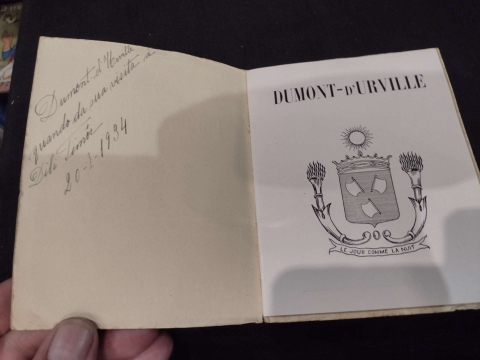 Dumont d'Urville
quando da sua visita a
Dili Timór
20-3-1934
DUMONT-D'URVILLE
LE JOUR COMME LA NUIT